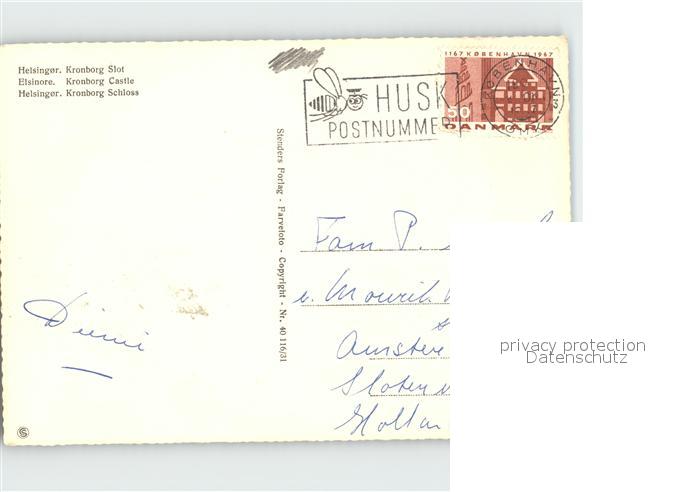 Helsingør. Kronborg Slot
Elsinore. Kronborg Castle
Helsingør. Kronborg Schloss
1167 KØBENHAVN 1967
HUSK
POSTNUMMER
50
DANMARK
KØBENHAVN
Stenders Forlag - Farvefoto - Copyright - Nr. 40 116/31
Fam P.
Amster
Sloten
Hollan
privacy protection
Datenschutz